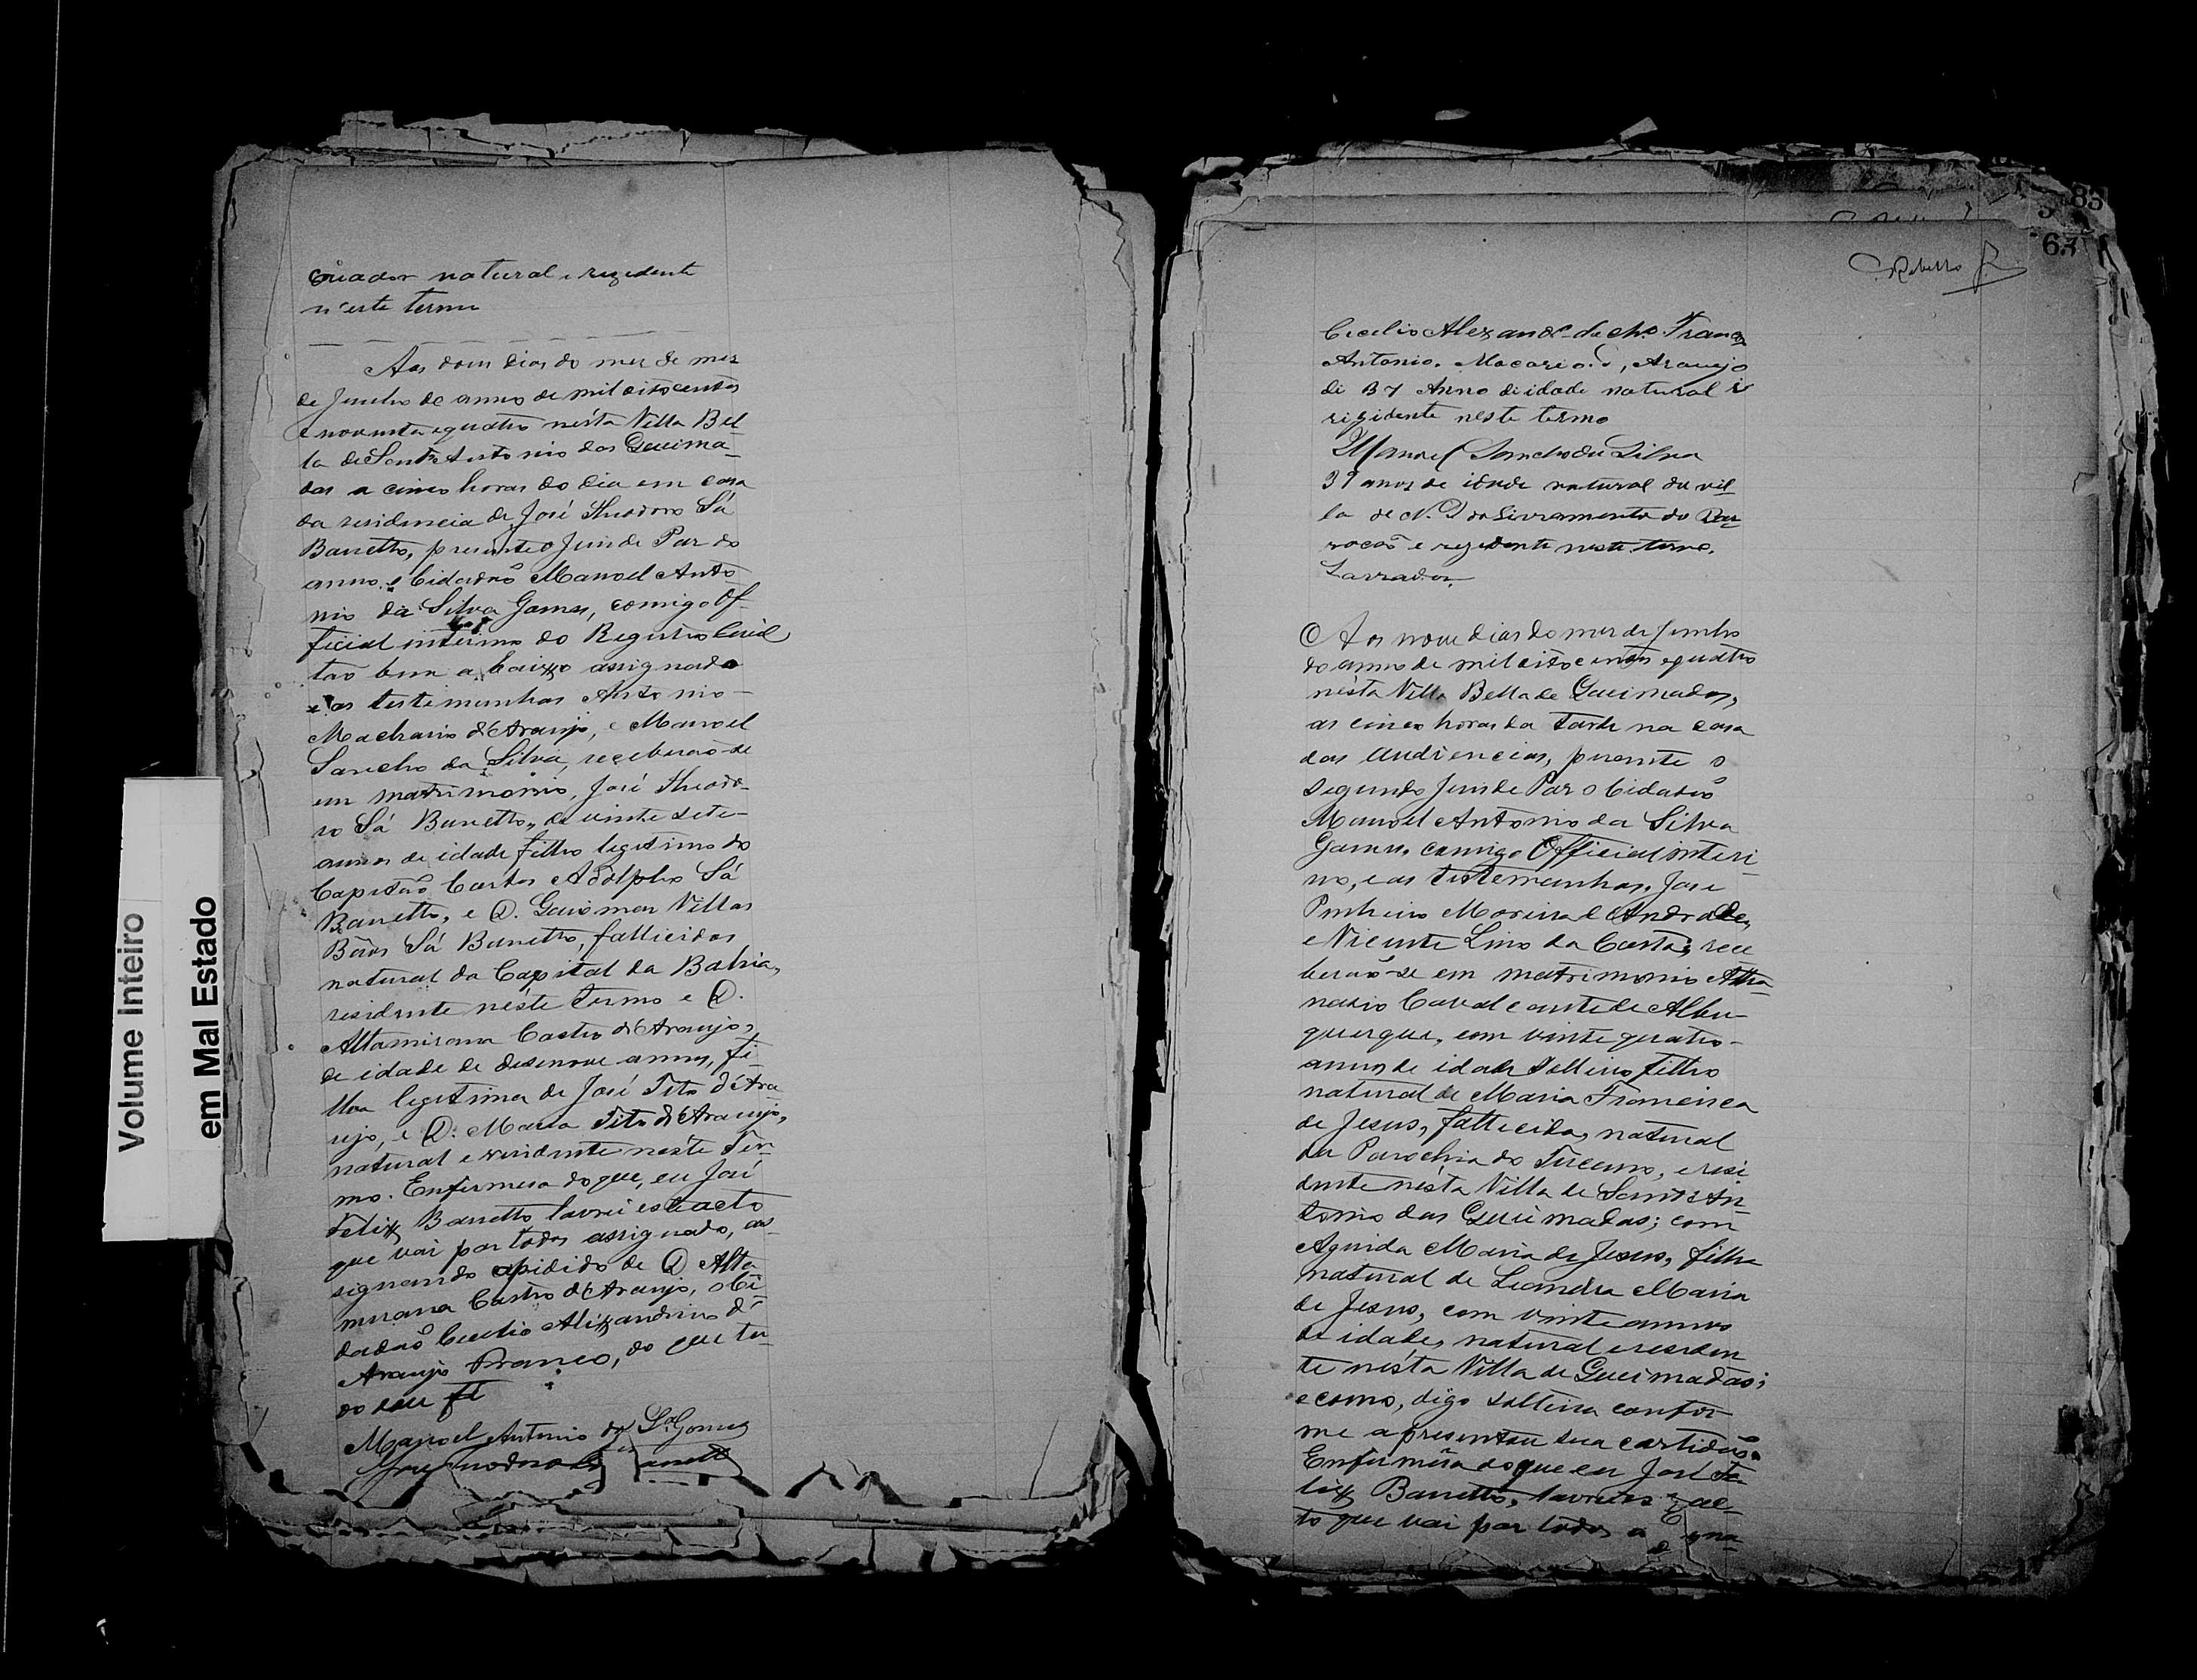 Criador natural e rezedente
n'este termo
Aos dous dias do mez de mez
de Junho de anno de mil oitocentos
e noventa e quatro nésta Villa Bel
la de Santo Antonio das Queima-
das a cinco horas do dia em casa
da residencia de José Theodoro Sá
Barretto, presente o Juiz de Paz do
anno, e Cidadão Manoel Anto
nio da Silva Gomes, comigo Of-
ficial interino do Registro Civil
tão bem a baixo assignado
e as testemunhas Antonio-
Machario d'Araujo, e Manoel
Sancho da Silva, receberão-se
em matrimonio, José Theodo-
ro Sá Barretto, de vinte sete-
annos de idade filho legitimo do
Capitão Carlos Adolpho Sá
Barretto, e D. Guiomar Villas
Bôas Sá Barretto, fallicidos
natural da Capital da Bahia,
residente néste Termo e D.
Altamirana Castro d'Araujo,
de idade de desenove annos, fi-
lha legitima de José Tito d'Ara
ujo, e D. Maria Tito d'Araujo,
natural e residente néste Ter-
mo. Enfirmesa do que, eu José
Felix Barretto lavrei este acto
que vai por todos assignado, as-
signando apidido de D. Alta
mirana Castro d'Araujo, o Ci
dadão Cicilio Alixandrino d'
Araujo Franco, do que tu-
do dou fé
Manoel Antonio da S.ª Gomes
José Theodoro Sá Barretto
Volume Inteiro
em Mal Estado
83
67
Rebello
Cicilio Alexand. de Ar.º Franco
Antonio. Macario. d', Araujo
de 37 Anno de idade natural i
rizidente neste termo
Manoel Sancho da Silva
37 anos de idade natural da vil-
la de N. S do Livramento do Bar-
rocão e rezedente neste termo.
Lavrador
Aos nove dias do mez de Junho
do anno de mil oitocentos e quatro
nésta Villa Bella de Queimadas,
as cinco horas da tarde na casa
das audiencias, presente o
segundo Juiz de Paz o Cidadão
Manoel Antonio da Silva
Gomes, comigo Official interi-
no, e as testemunhas, José
Pinheiro Moreira e Andrade,
e Vicente Lino da Costa; rece
berão-se em matrimonio Atha-
nasio Cavalcante de Albu-
querque, com vinte quatro-
annos de idade solteiro filho
natural de Maria Francisca
de Jesus, fallecida, natural
da Parochia do Tucano, e resi
dente nésta Villa de Santo An-
tonio das Queimadas; com
Aguida Maria de Jesus, filha
natural de Leandra Maria
de Jesus, com vinte annos
de idade, natural e residen
te nésta Villa de Queimadas;
e como, digo solteira confor-
me apresentou sua certidão.
Enfirmêsa do que eu José Fe-
lix Barretto, lavrei este ac-
to que vai por todos a gna-